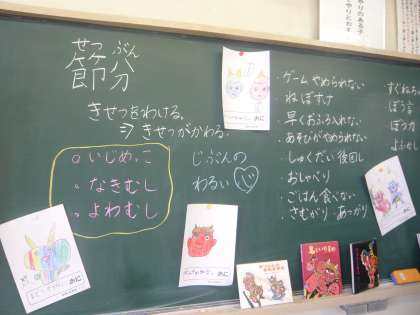 せつ ぶん
節分
きせつをわける。
⇒ きせつがかわる。
いじめっこ
なきむし
よわむし
じぶんの
わるい 心
・ゲームやめられない
・ねぼすけ
・早くおふろ入れない
・あそびがやめられない
・しゅくだい後回し
・おしゃべり
・ごはん食べない
・さむがり・あつがり
すぐねちゃ
ぼう言
ぼう力
よふかし
おに
おに
おに